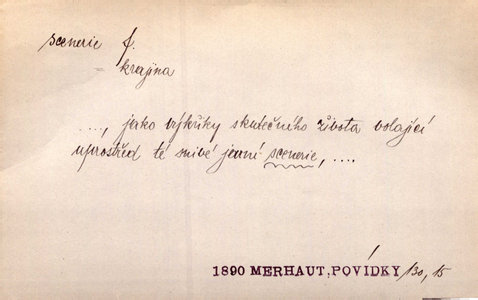 scenerie f.
= krajina
...., jako výkřiky skutečného života volající
uprostřed té snivé jevné scenerie, ....
1890 MERHAUT, POVÍDKY /130, 15